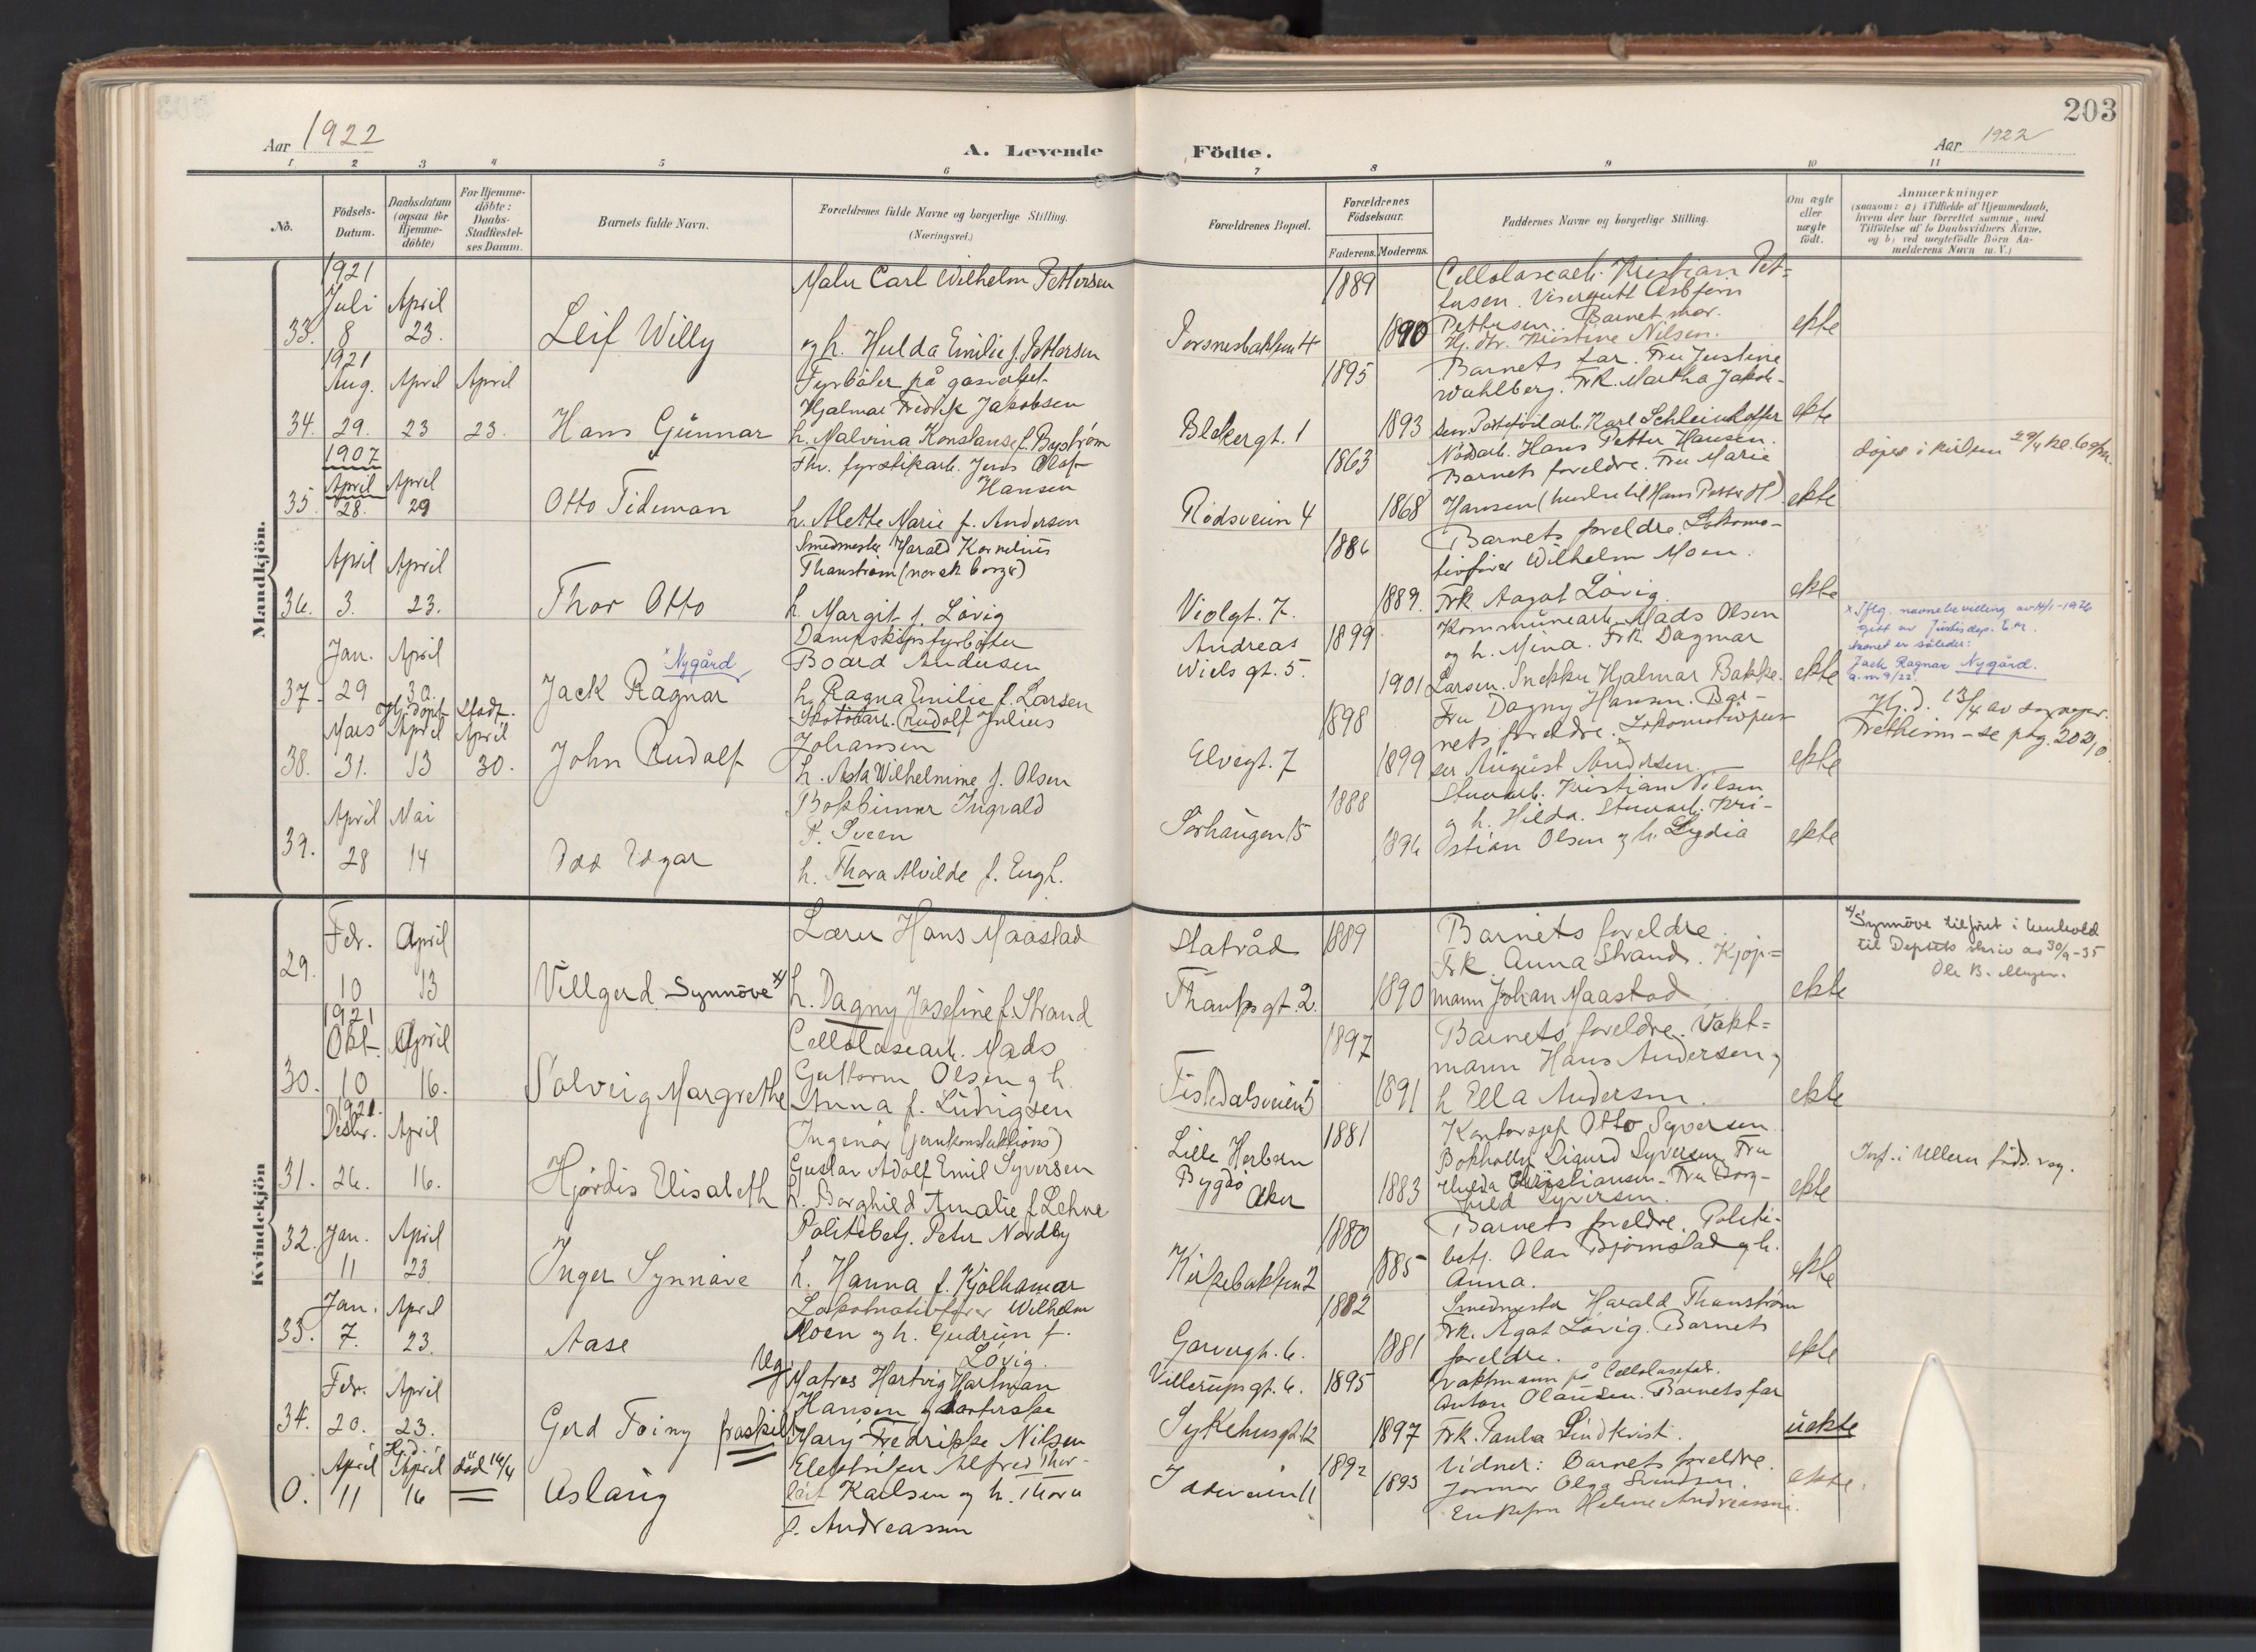 203
Aar 1922
A. Levende Födte.
Aar 1922
1 2 3 4 5 6 7 8 9 10 11
No.
Födsels-
Datum.
Daabsdatum
(ogsaa for
Hjemme-
döbte)
For Hjemme-
döbte:
Daabs-
Stadfæstel-
ses Datum.
Barnets fulde Navn.
Forældrenes fulde Navne og borgerlige Stilling.
(Næringsvei.)
Forældrenes Bopæl.
Forældrenes
Födselsaar.
Faderens. Moderens.
Faddernes Navne og borgerlige Stilling.
Om ægte
eller
uægte
födt.
Anmærkninger
(saasom: a) i Tilfælde af Hjemmedaab,
hvem der har forrettet samme, med
Tilföielse af to Daabsvidners Navne,
og b) ved uægtefödte Börn An-
melderens Navn m. V.)
Mandkjön.
33.
1921
Juli
8
April
23.
Leif Willy
Maler Carl Wilhelm Pettersen
og h. Hulda Emilie f. Pettersen
Torsnesbakken 4
1889
1890
Cellolosearb. Kristian Pet=
tersen. Visergutt Asbjørn
Pettersen. Barnet mor.
Hj. dtr. Kristine Nilsen.
ekte
34.
1921
Aug.
29.
April
23
April
23.
Hans Gunnar
Fyrbøter på gasverket
Hjalmar Fredrik Jakobsen
h. Malvina Konstanse f. Byström
Blekergt. 1
1895
1893
Barnets far. Fru Justine
Wahlberg. Frk. Martha Jakob-
sen. Karl
ekte
35.
1907
April
28.
April
29
Otto Tideman
Fhv. fyrstikarb. Jens Olaf
Hansen
h. Alette Marie f. Andersen
Rödsveien 4
1863
1868
Hans Petter Hansen.
Barnets foreldre. Fru Marie
Hansen (hustru til Hans Petter H)
ekte
døpes i kirken 29/4 kl. 6
36.
April
3.
April
23.
Thor Otto
Smedmester Harald Kornelius
Thanström (norsk borger)
h. Margit f. Lövig
Violgt. 7.
1886
1889.
Barnets foreldre. Lokomo-
tivfører Wilhelm Moen.
Frk. Aagot Lövig.
ekte
37
Jan.
29
April
30.
Jack Ragnar
x Nygård
Dampskipsfyrbøter
Board Andersen
h. Ragna Emilie f. Larsen
Andreas
Wiels gt. 5.
1899
1901
Kommunearb. Mads Olsen
og h. Mina. Frk. Dagmar
Larsen. Snekker Hjalmar Bakke.
ekte
x Iflg. navnebevilling av 14/1-1926
gitt av Justisdep. E.M.
navnet er således:
Jack Ragnar Nygård.
38.
Mars
31.
Hj. döpt
April
13
stadf.
April
30.
John Rudolf
Skotöiarb. Rudolf Julius
Johansen
h. Asta Wilhelmine f. Olsen
Elvegt. 7
1898
1899
Fru Dagny Hansen. Bar-
nets foreldre. Lokomotivpus-
ser August Andersen.
ekte
Hj.d. 13/4 av sognepr.
Fretheim - se pag. 202,0
39.
April
28
Mai
14
Odd Edgar
Bokbinder Ingvald
P. Sveen
h. Thora Alvilde f. Engh.
Sörhaugen 15
1888
1896
Stuearb. Kristian Nilsen
og h. Hilda. Stuearb. Kri-
stian Olsen og h. Lydia
ekte
Kvindekjön
29.
Febr.
10
April
13
Villgerd Synnöve x/
Lærer Hans Maastad
h. Dagny Josefine f. Strand
Slatråd
Thanksgt. 2.
1889
1890
Barnets foreldre.
Frk. Anna Strand. Kjöp=
mann Johan Maastad
ekte
x/ Synnöve tilföiet i henhold
til Deptets skriv av 30/9-35
30.
1921
Okt.
10
April
16.
Solveig Margrethe
Cellolosearb. Mads
Guttorm Olsen og h.
Anna f. Ludvigsen
Tistedalsveien 5
1897
1891
Barnets foreldre. Vakt=
mann Hans Andersen og
h Ella Andersen.
ekte
31.
1921.
Desbr.
26.
April
16.
Hjørdis Elisabeth
Ingeniör (jernkonstruktions)
Gustav Adolf Emil Syversen
h. Borghild Amalie f. Lehne
Lille Herbern
Bygdö
Aker
1881
1883
Kontorsjef Otto Syversen
Bokholder Sigurd Syversen. Fru
Hulda Kristiansen. Fru Borg-
hild Syversen.
ekte
Inf. i Ullern föds.reg.
32.
Jan.
11
April
23
Inger Synnöve
Politibetj. Peter Nordby
h. Hanna f. Kjölhamar
Kirkebakken 2
1880
1885
Barnets foreldre. Politi-
betj. Olav Björnstad og h.
Anna.
ekte
33.
Jan.
7.
April
23.
Aase
Lokomotivfører Wilhelm
Moen og h. Gudrun f.
Lövig.
Garvergt. 6.
1882
1881
Smedmester Harald Thanström
Frk. Agot Lövig. Barnets
foreldre.
ekte
34.
Febr.
20.
April
23.
Gerd Toiny
Ug.
fraskilt
Matros Hartvig Hartman
Hansen og
Mary Fredrikke Nilsen
Villerups gt. 6.
Sykehusgt. 12
1895
1897
Vaktmann på Cellolosefab.
Anton Olausen. Barnets far
Frk. Paula Lindkvist.
uekte
0.
April
11
Hj.d.
April
16
död 16/4
Aslaug
Elektriker Alfred Thor-
leif Karlsen og h. Thora
f. Andreassen
Iddeveien 11
1892
1893
Vidner: Barnets foreldre.
Jormor Olga Svendsen.
Enkefru Helene Andreassen.
ekte.